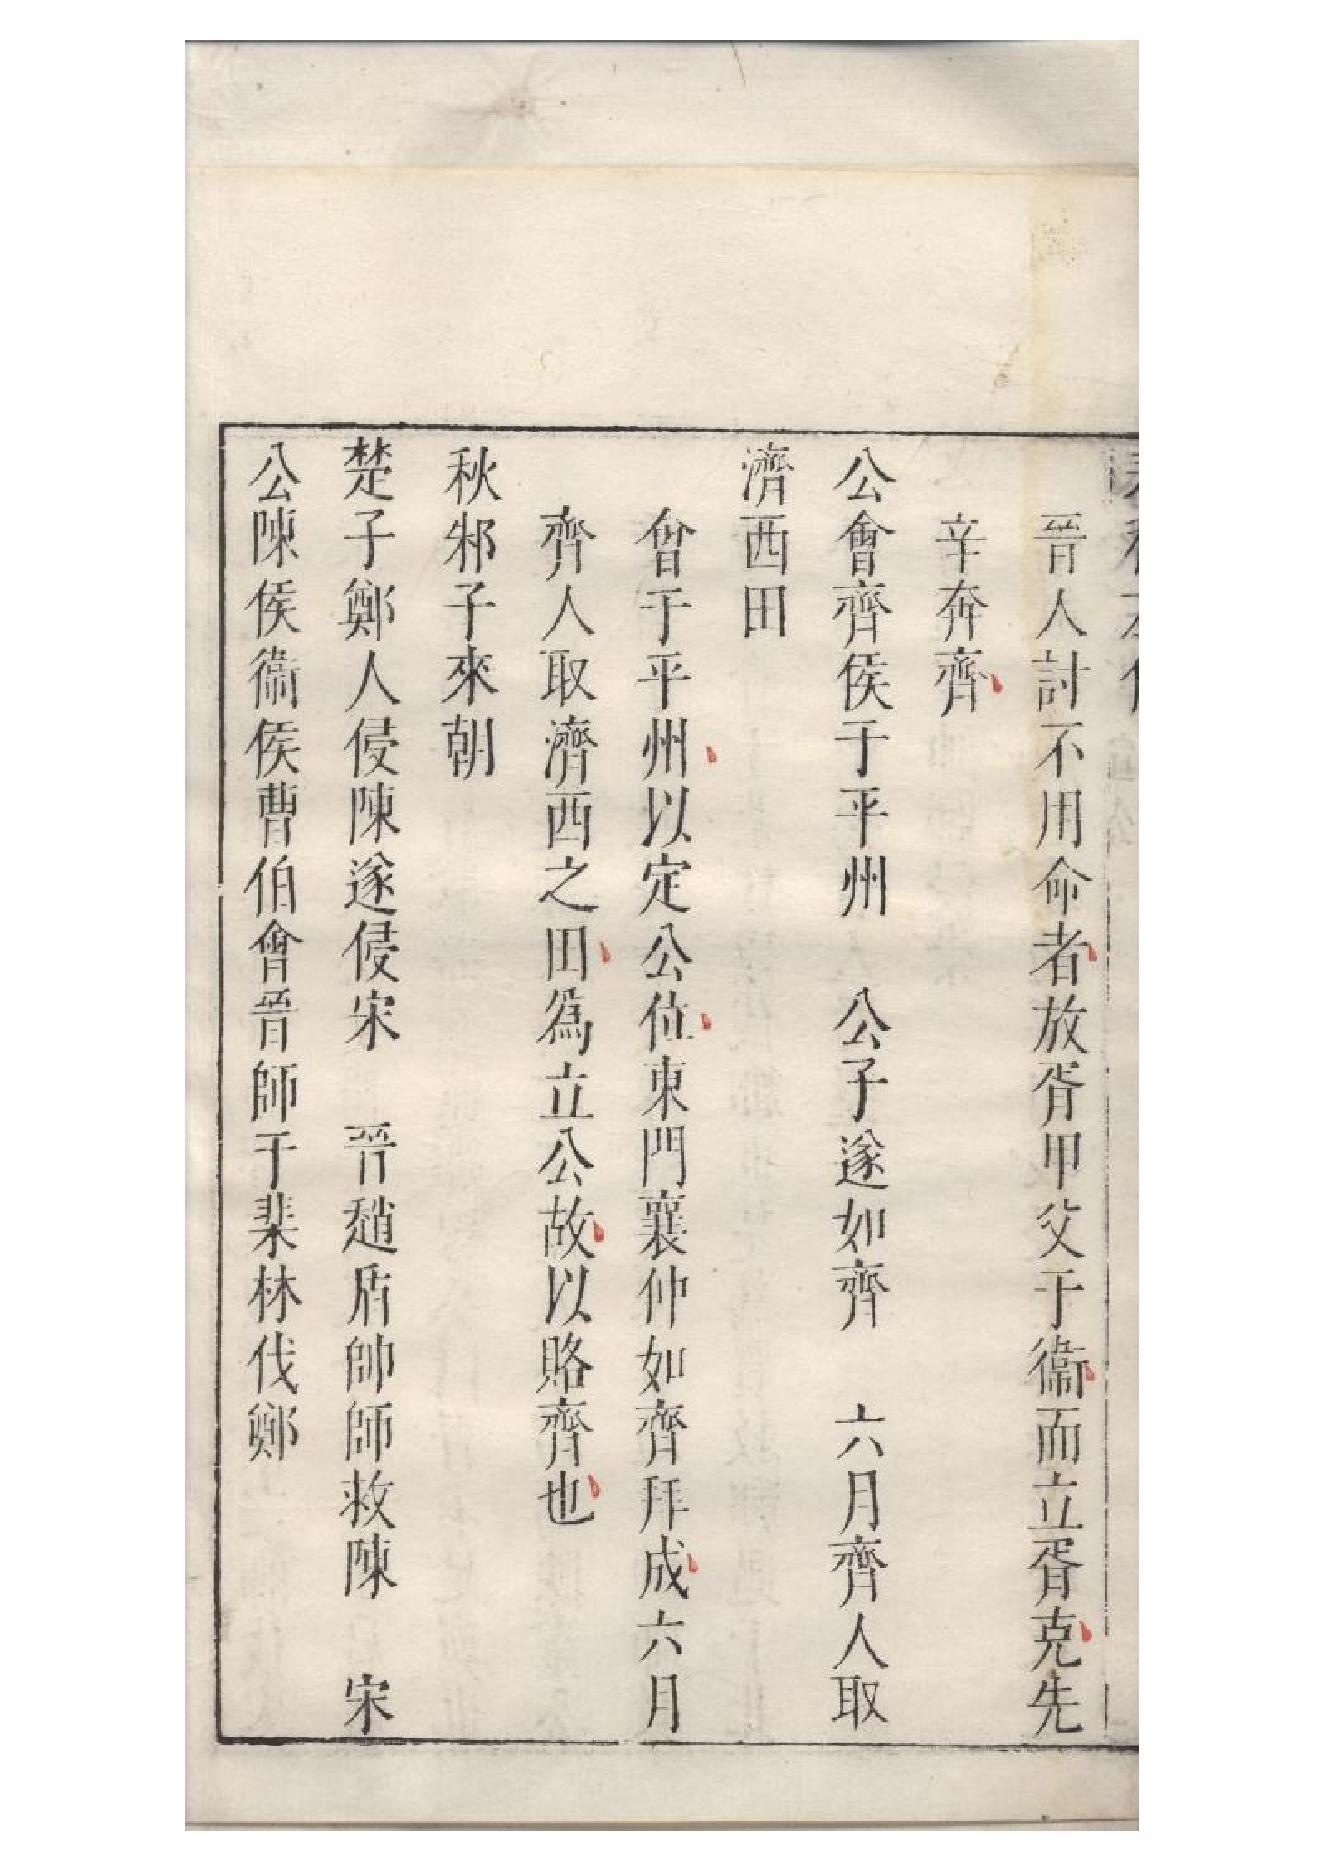 晉人討不用命者放胥甲父于衞而立胥克先
辛奔齊
公會齊侯于平州　公子遂如齊　六月齊人取
濟西田
會于平州以定公位東門襄仲如齊拜成六月
齊人取濟西之田爲立公故以賂齊也
秋邾子來朝
楚子鄭人侵陳遂侵宋　晉趙盾帥師救陳　宋
公陳侯衞侯曹伯會晉師于棐林伐鄭